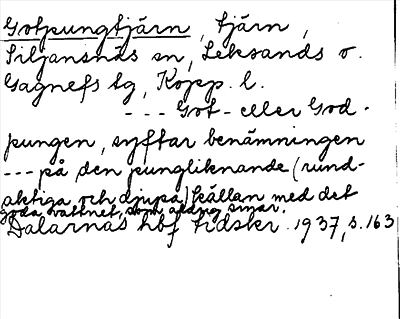 Gotpungtjärn, tjärn,
Siljansnäs sn, Leksands o.
Gagnefs tg, Kopp. l.
--- Got- eller God-
pungen, syftar benämningen
--- på den pungliknande (rund-
aktiga och djupa) källan med det
goda vattnet, som aldrig sinar.
Dalarnas hbf tidskr. 1937, s. 163